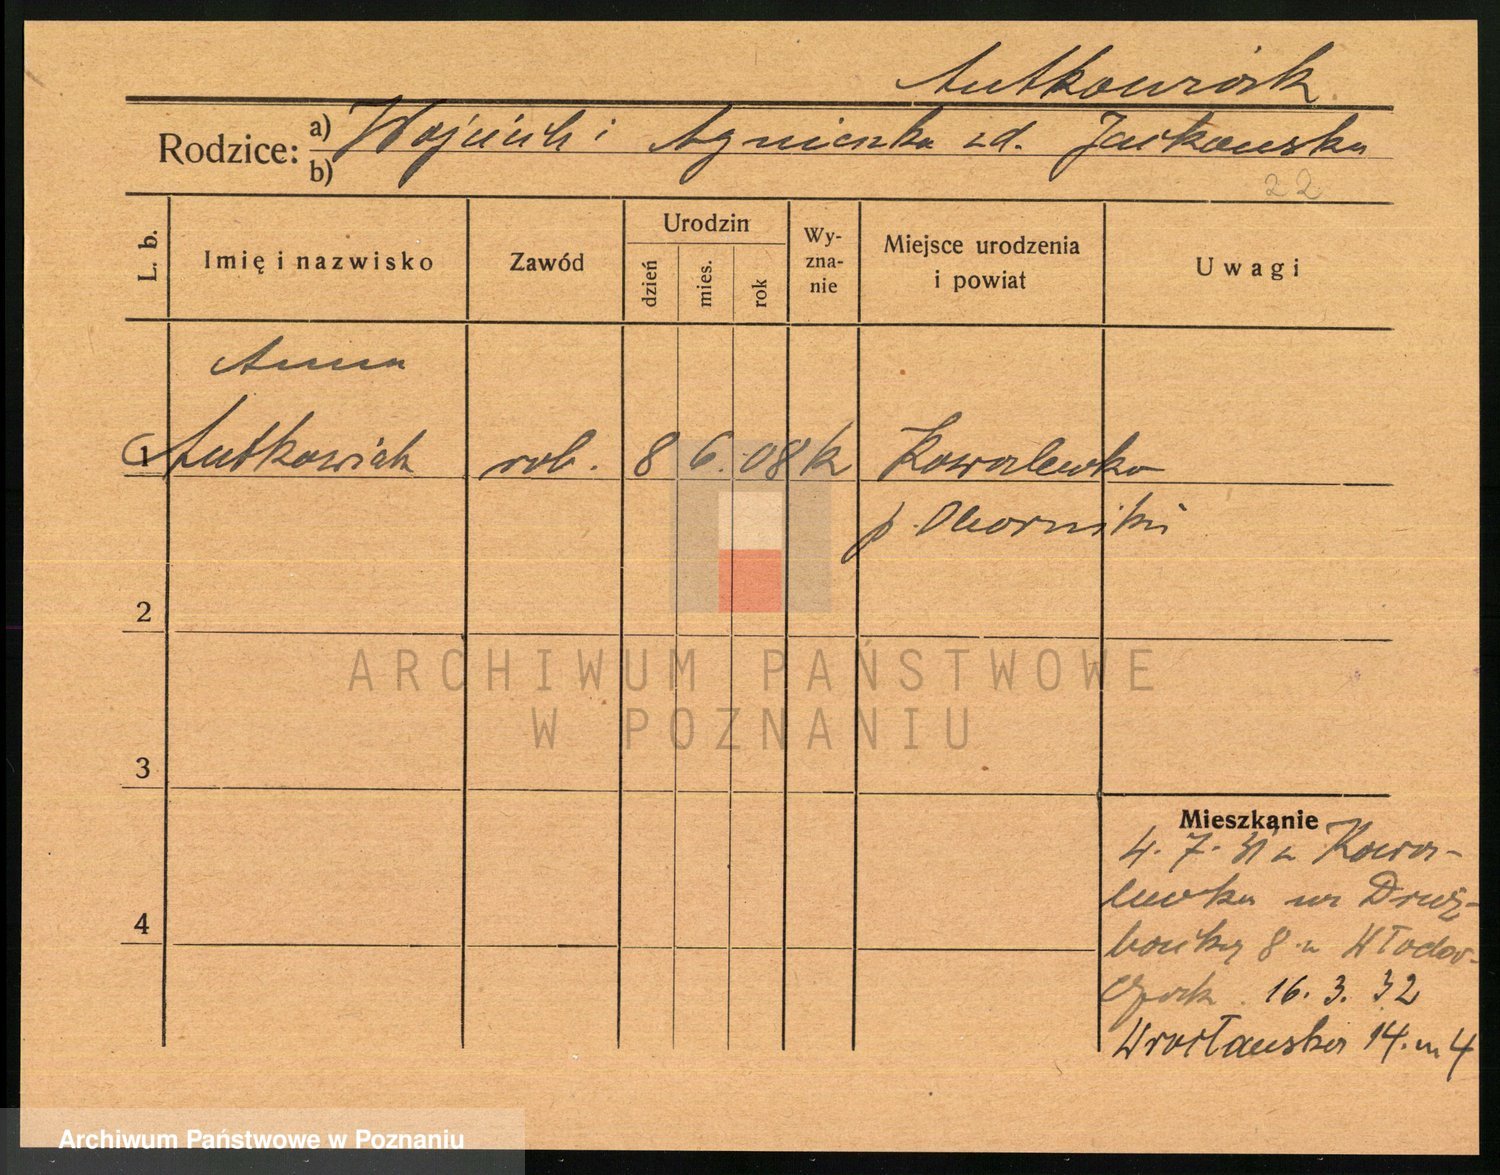 Antkowiak
Rodzice: a) Wojciech i Agnieszka zd.
b)
22
L. b.
Imię i nazwisko
Zawód
Urodzin
dzień
mies.
rok
Wy-
zna-
nie
Miejsce urodzenia
i powiat
Uwagi
Anna
1 Antkowiak rob. 8 6. 08 k Kowalewko
p. Oborniki
2
3
4
Mieszkanie
4. 7. 31 z Kowa-
lewka na Druż-
backiej 8 u Włodar-
czak 16. 3. 32
Wrocławska 14. m 4
ARCHIWUM PAŃSTWOWE
W POZNANIU
Archiwum Państwowe w Poznaniu